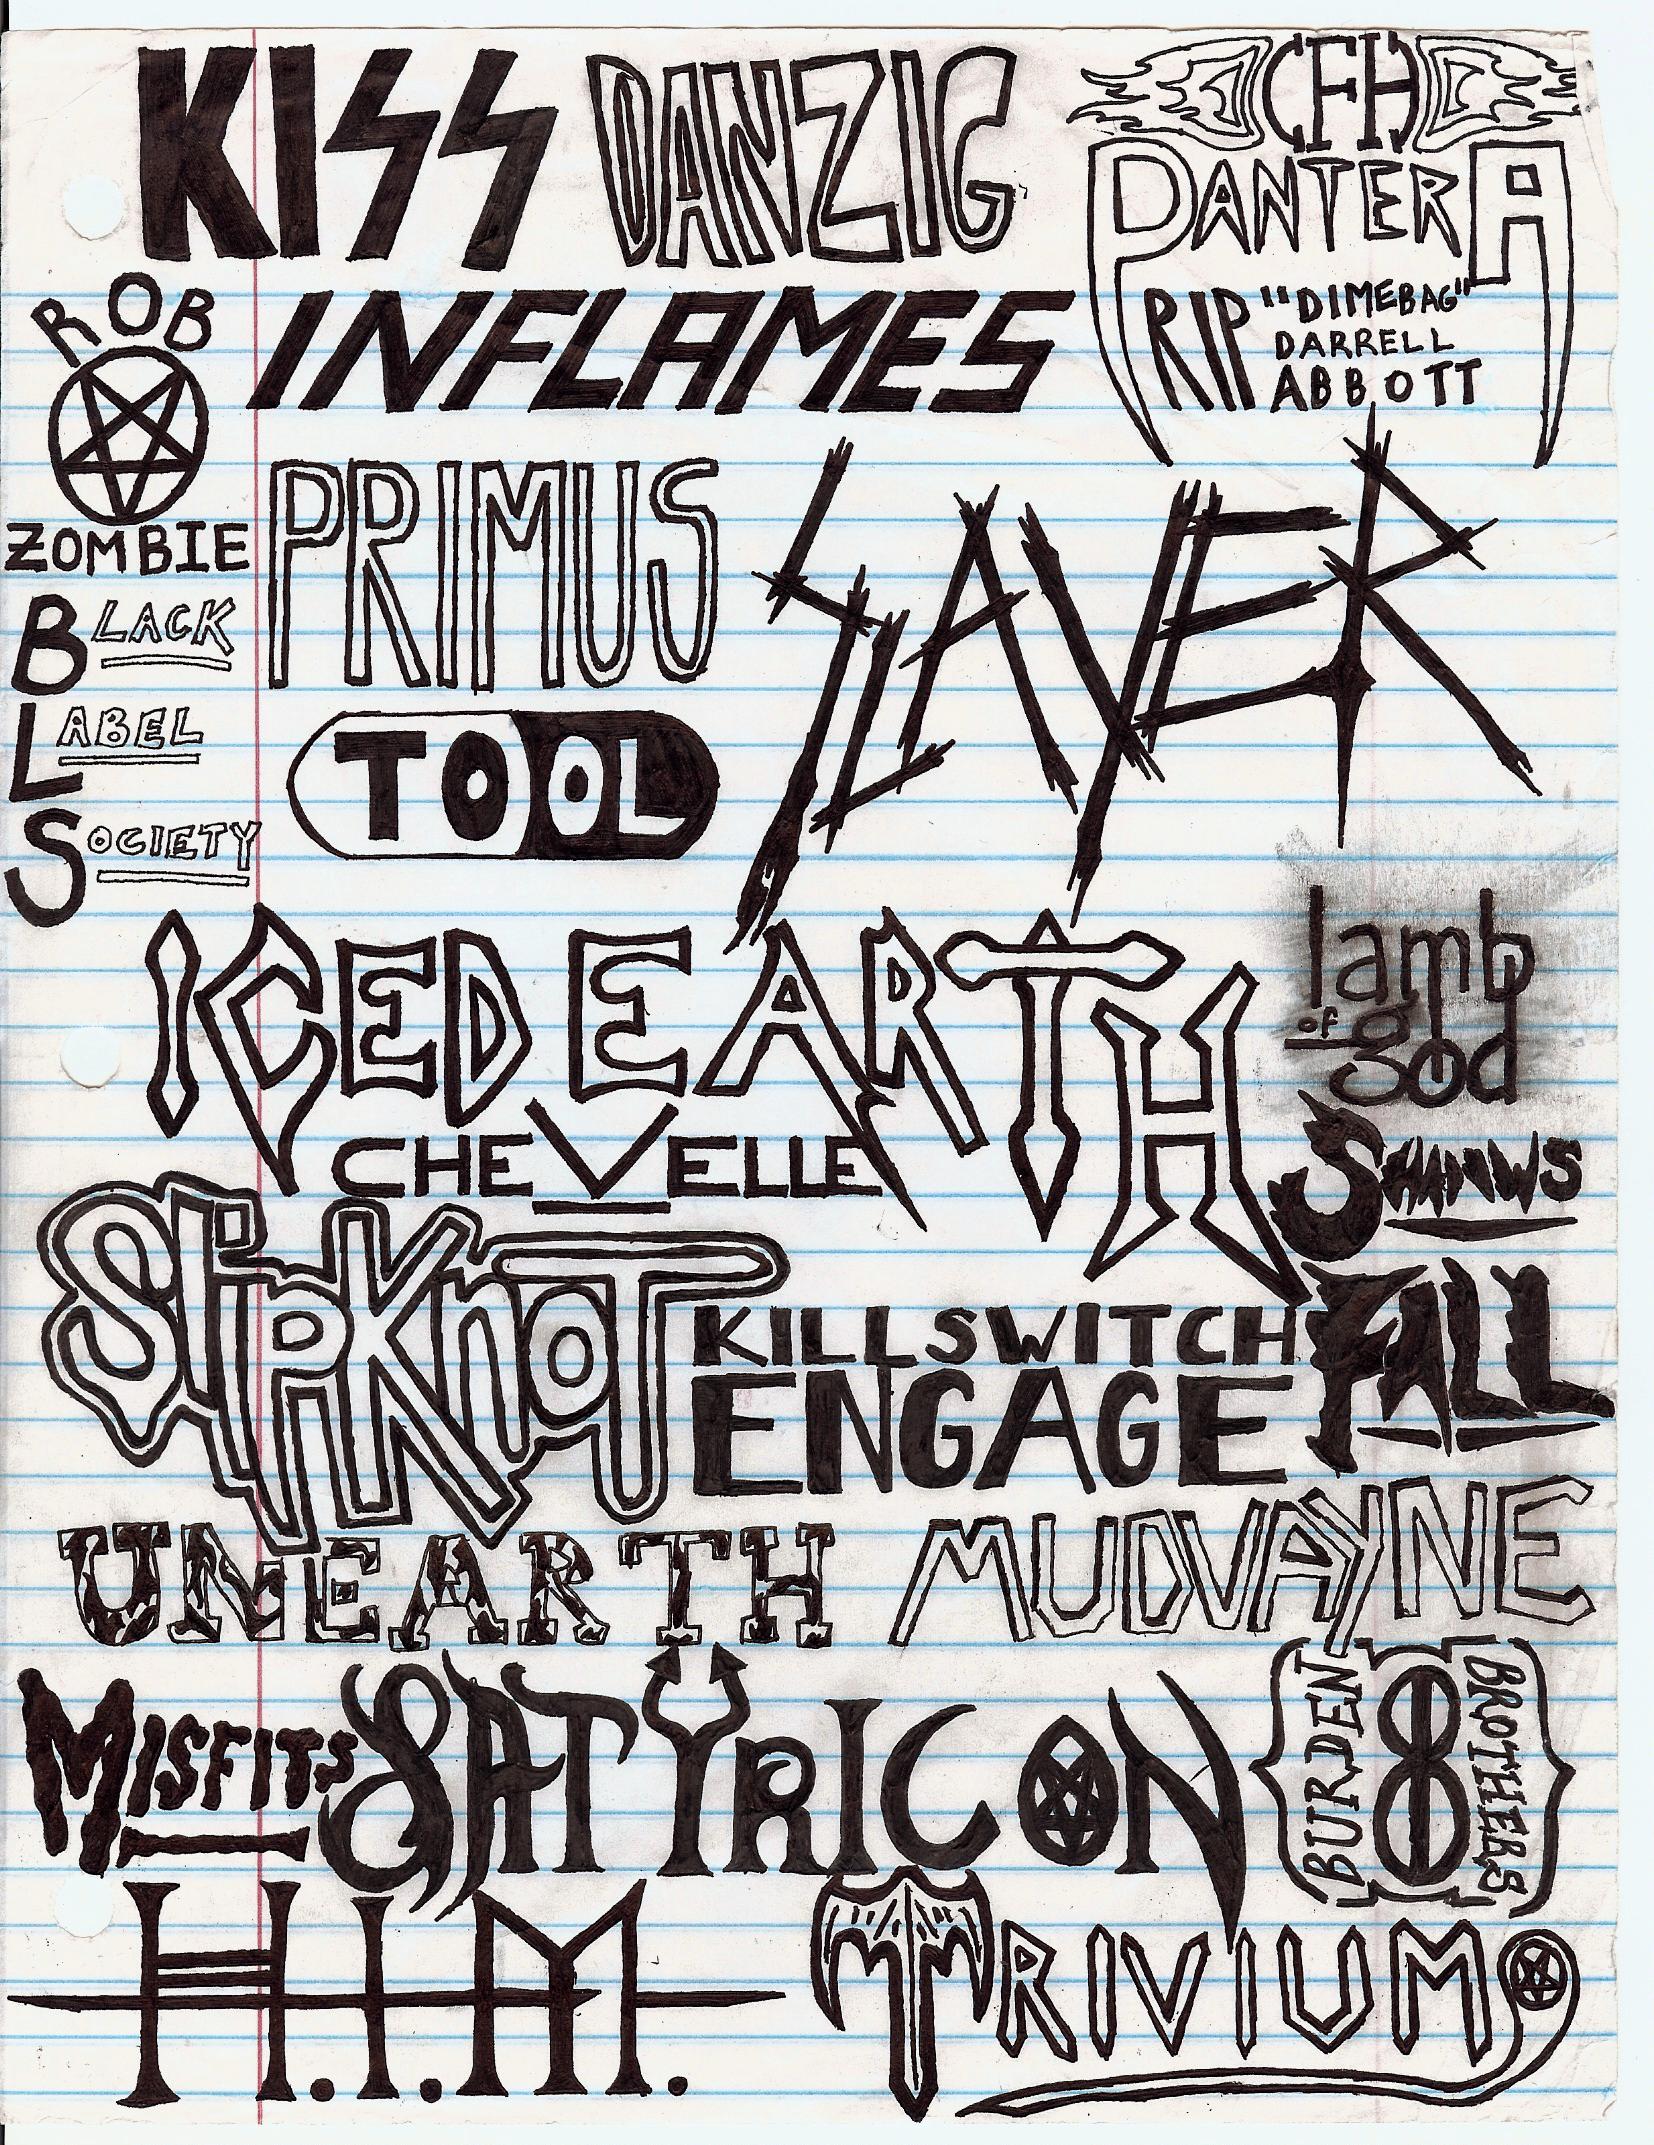 KISS
DANZIG
CFH
PANTERA
RIP "DIMEBAG"
DARRELL
ABBOTT
ROB
ZOMBIE
INFLAMES
PRIMUS
SLAYER
BLACK
LABEL
SOCIETY
TOOL
ICED EARTH
lamb
of god
CHEVELLE
SHADOWS
FALL
SLIPKNOT
KILLSWITCH
ENGAGE
UNEARTH
MUDVAYNE
MISFITS
SATYRICON
BURDEN
BROTHERS
H.I.M.
TRIVIUM